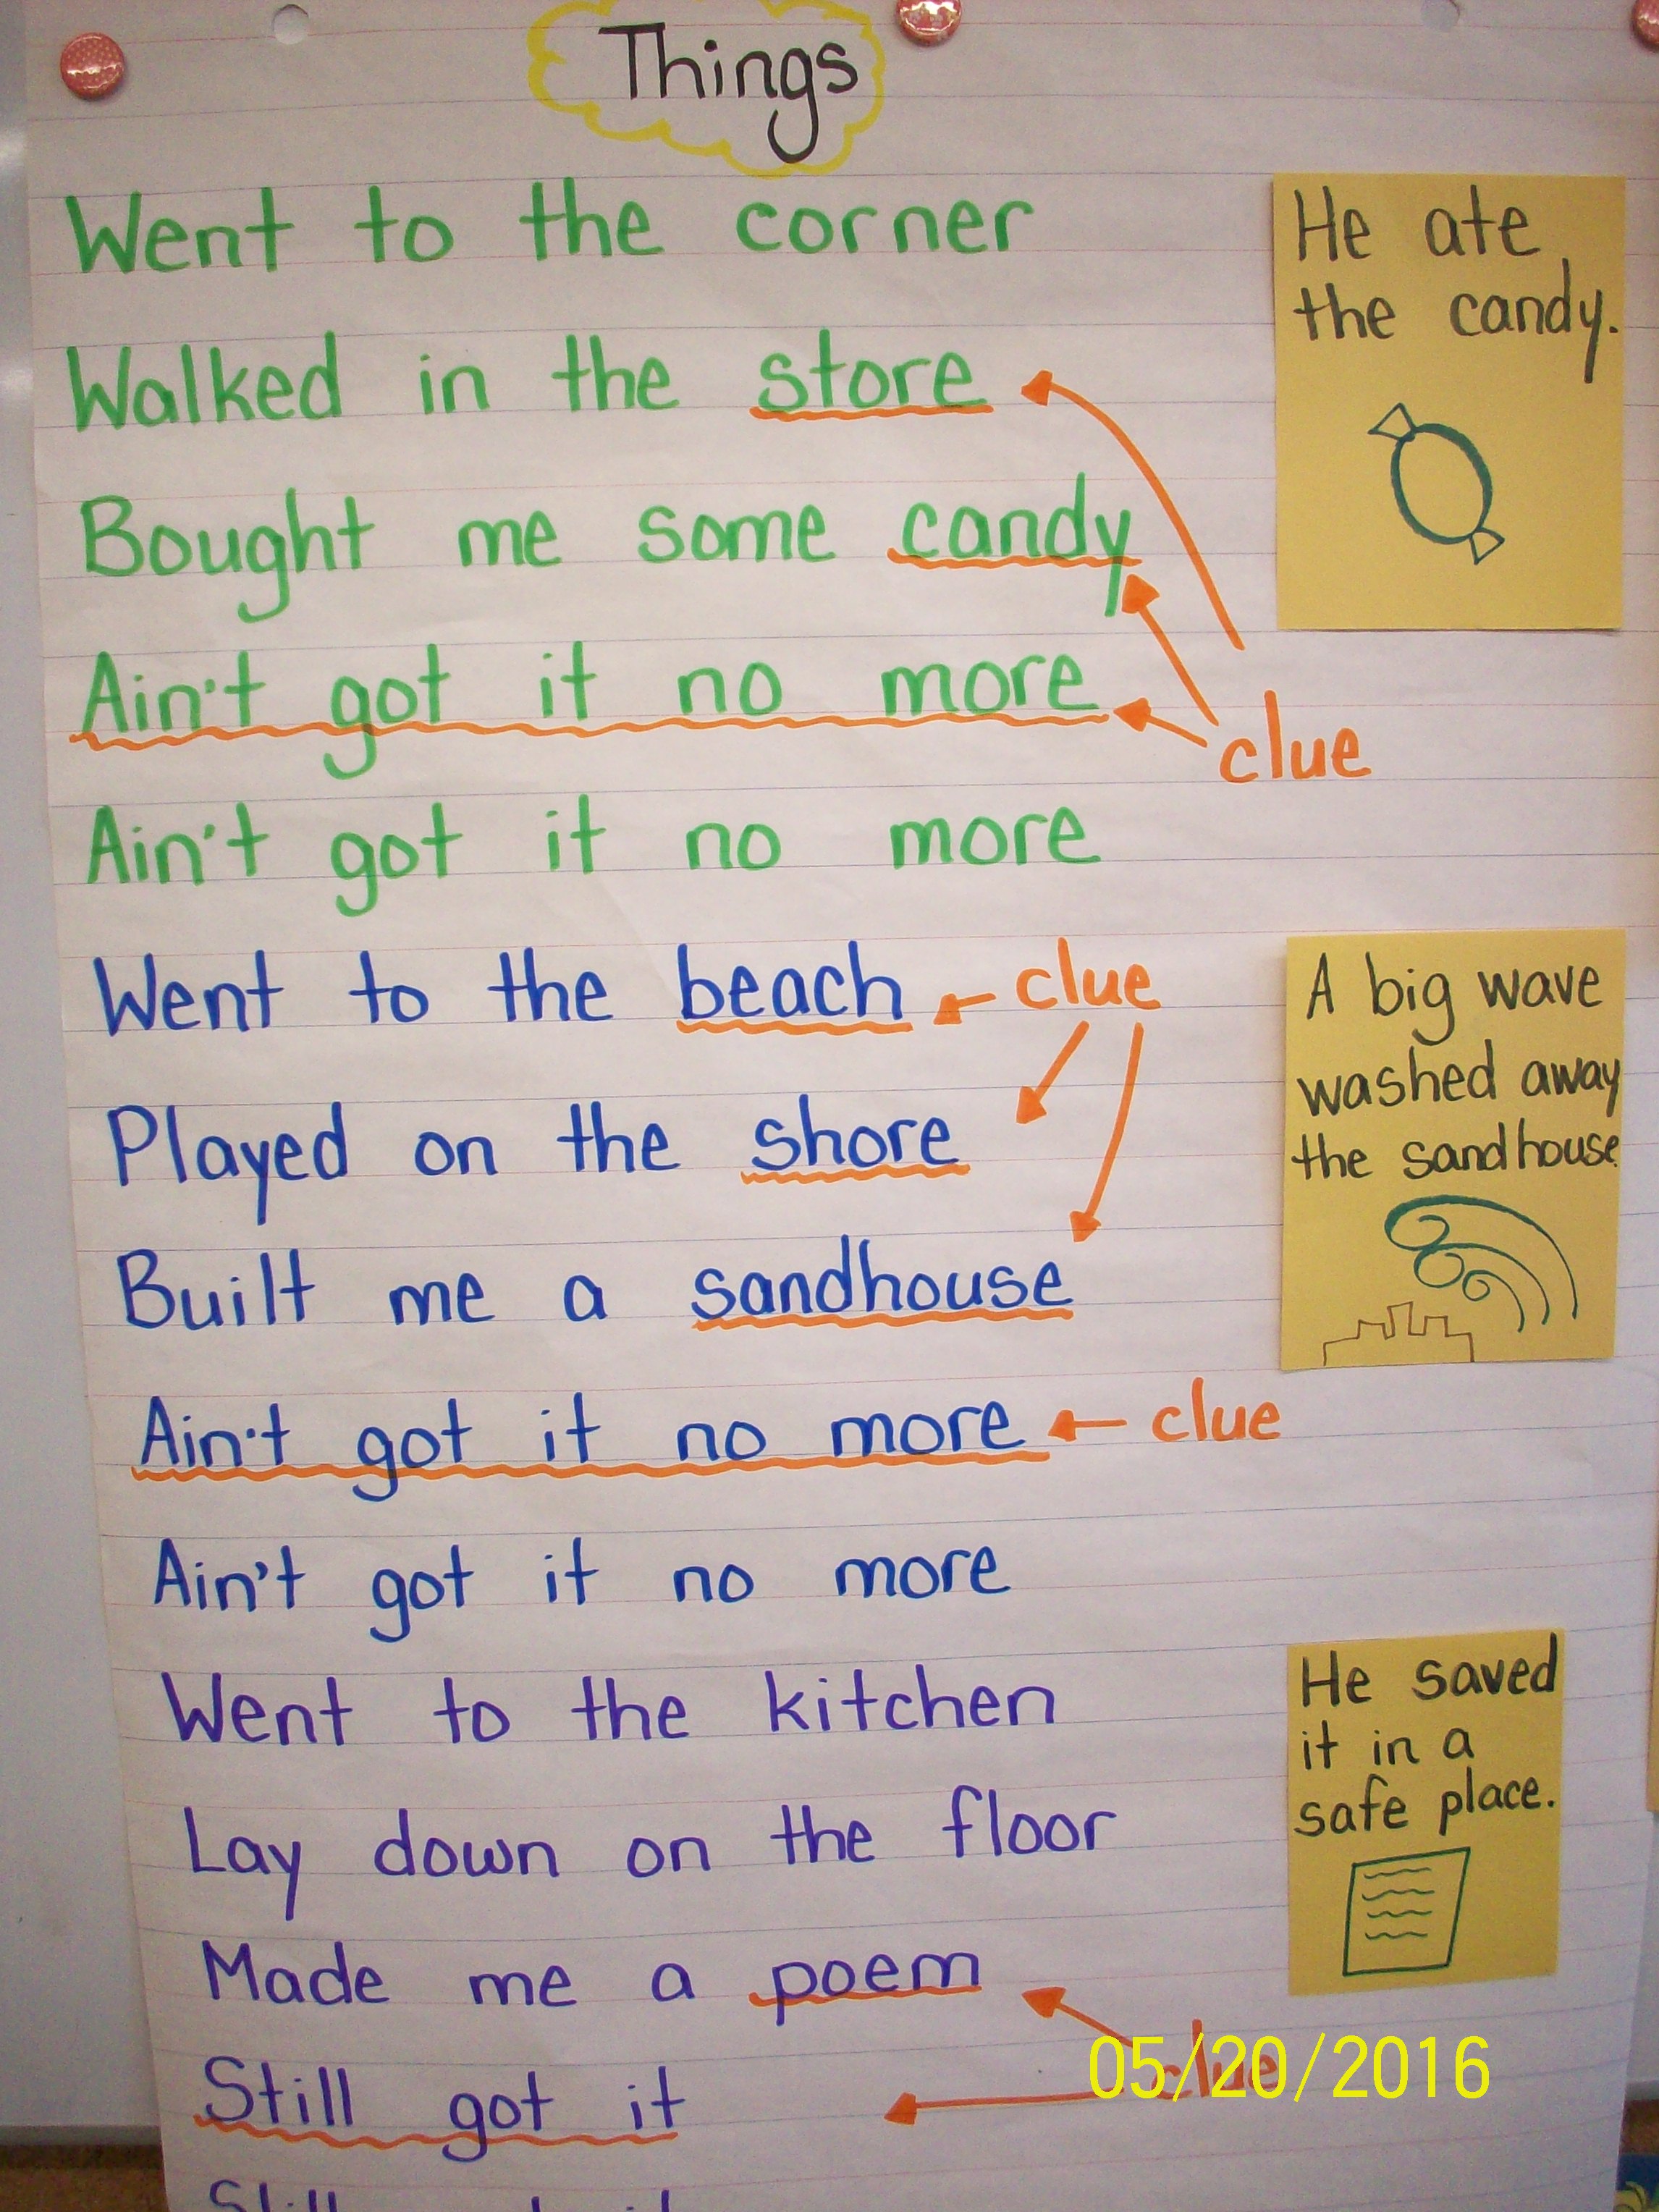 Things
Went to the corner
Walked in the store
Bought me some candy
Ain't got it no more
clue
Ain't got it no more
Went to the beach
clue
Played on the shore
Built me a sandhouse
Ain't got it no more
clue
Ain't got it no more
Went to the kitchen
Lay down on the floor
Made me a poem
clue
Still got it
He ate
the candy.
A big wave
washed away
the sandhouse.
He saved
it in a
safe place.
05/20/2016